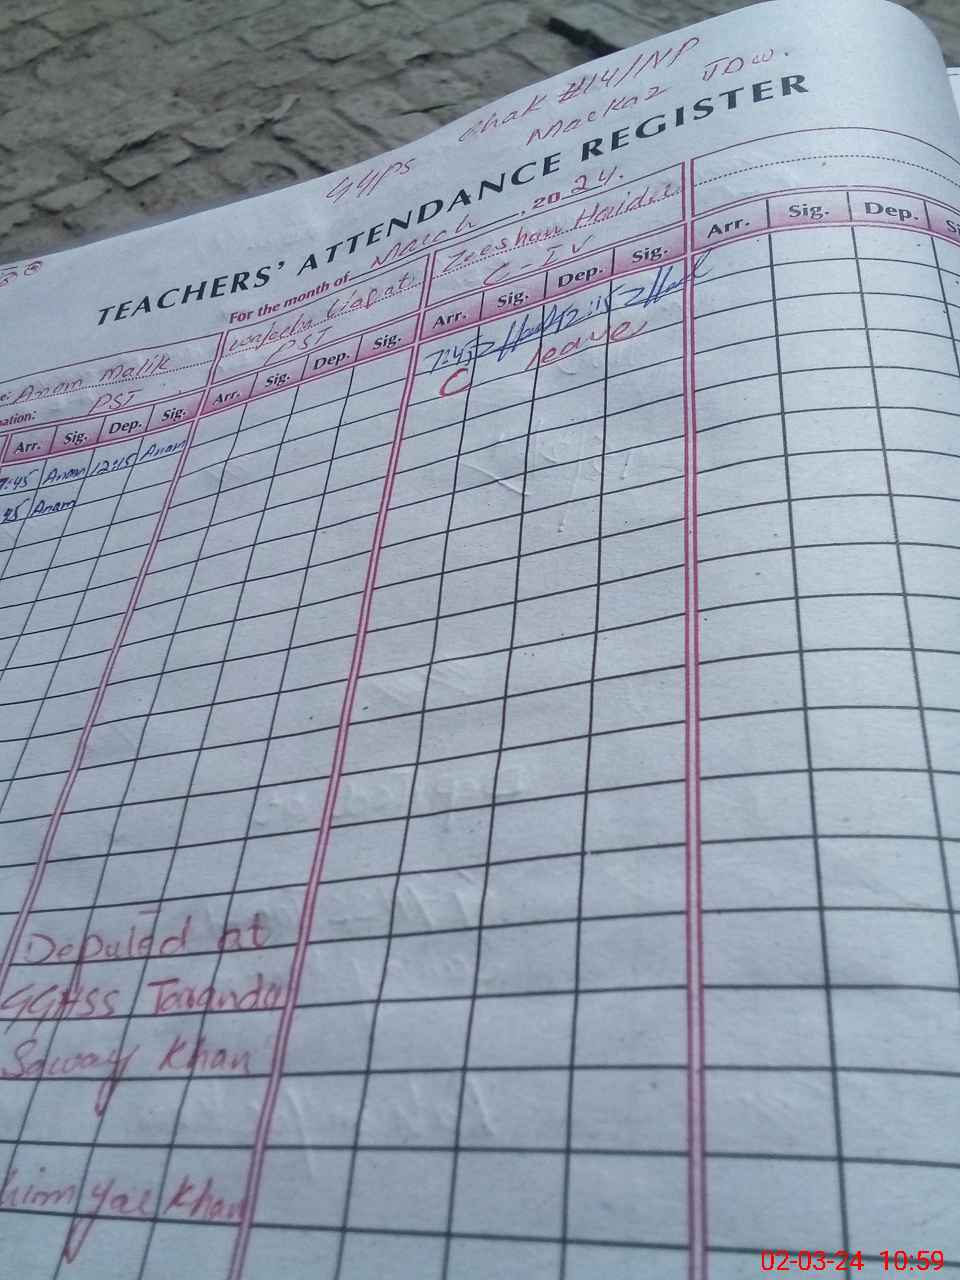 GGPS Chak #14/NP
Markaz JDW.
TEACHERS' ATTENDANCE REGISTER
For the month of March, 2024.
Anam Malik
PST
Liaqat
PST
Zeeshan Haider
C-IV
Arr. Sig. Dep. Sig.
Arr. Sig. Dep. Sig.
Arr. Sig. Dep. Sig.
Arr. Sig. Dep.
7:45 Anam 12:15 Anam
45 Anam
7:45 12:15
C leave
Deputed at
GGHSS Taranda
Saway Khan
him yar Khan
02-03-24 10:59